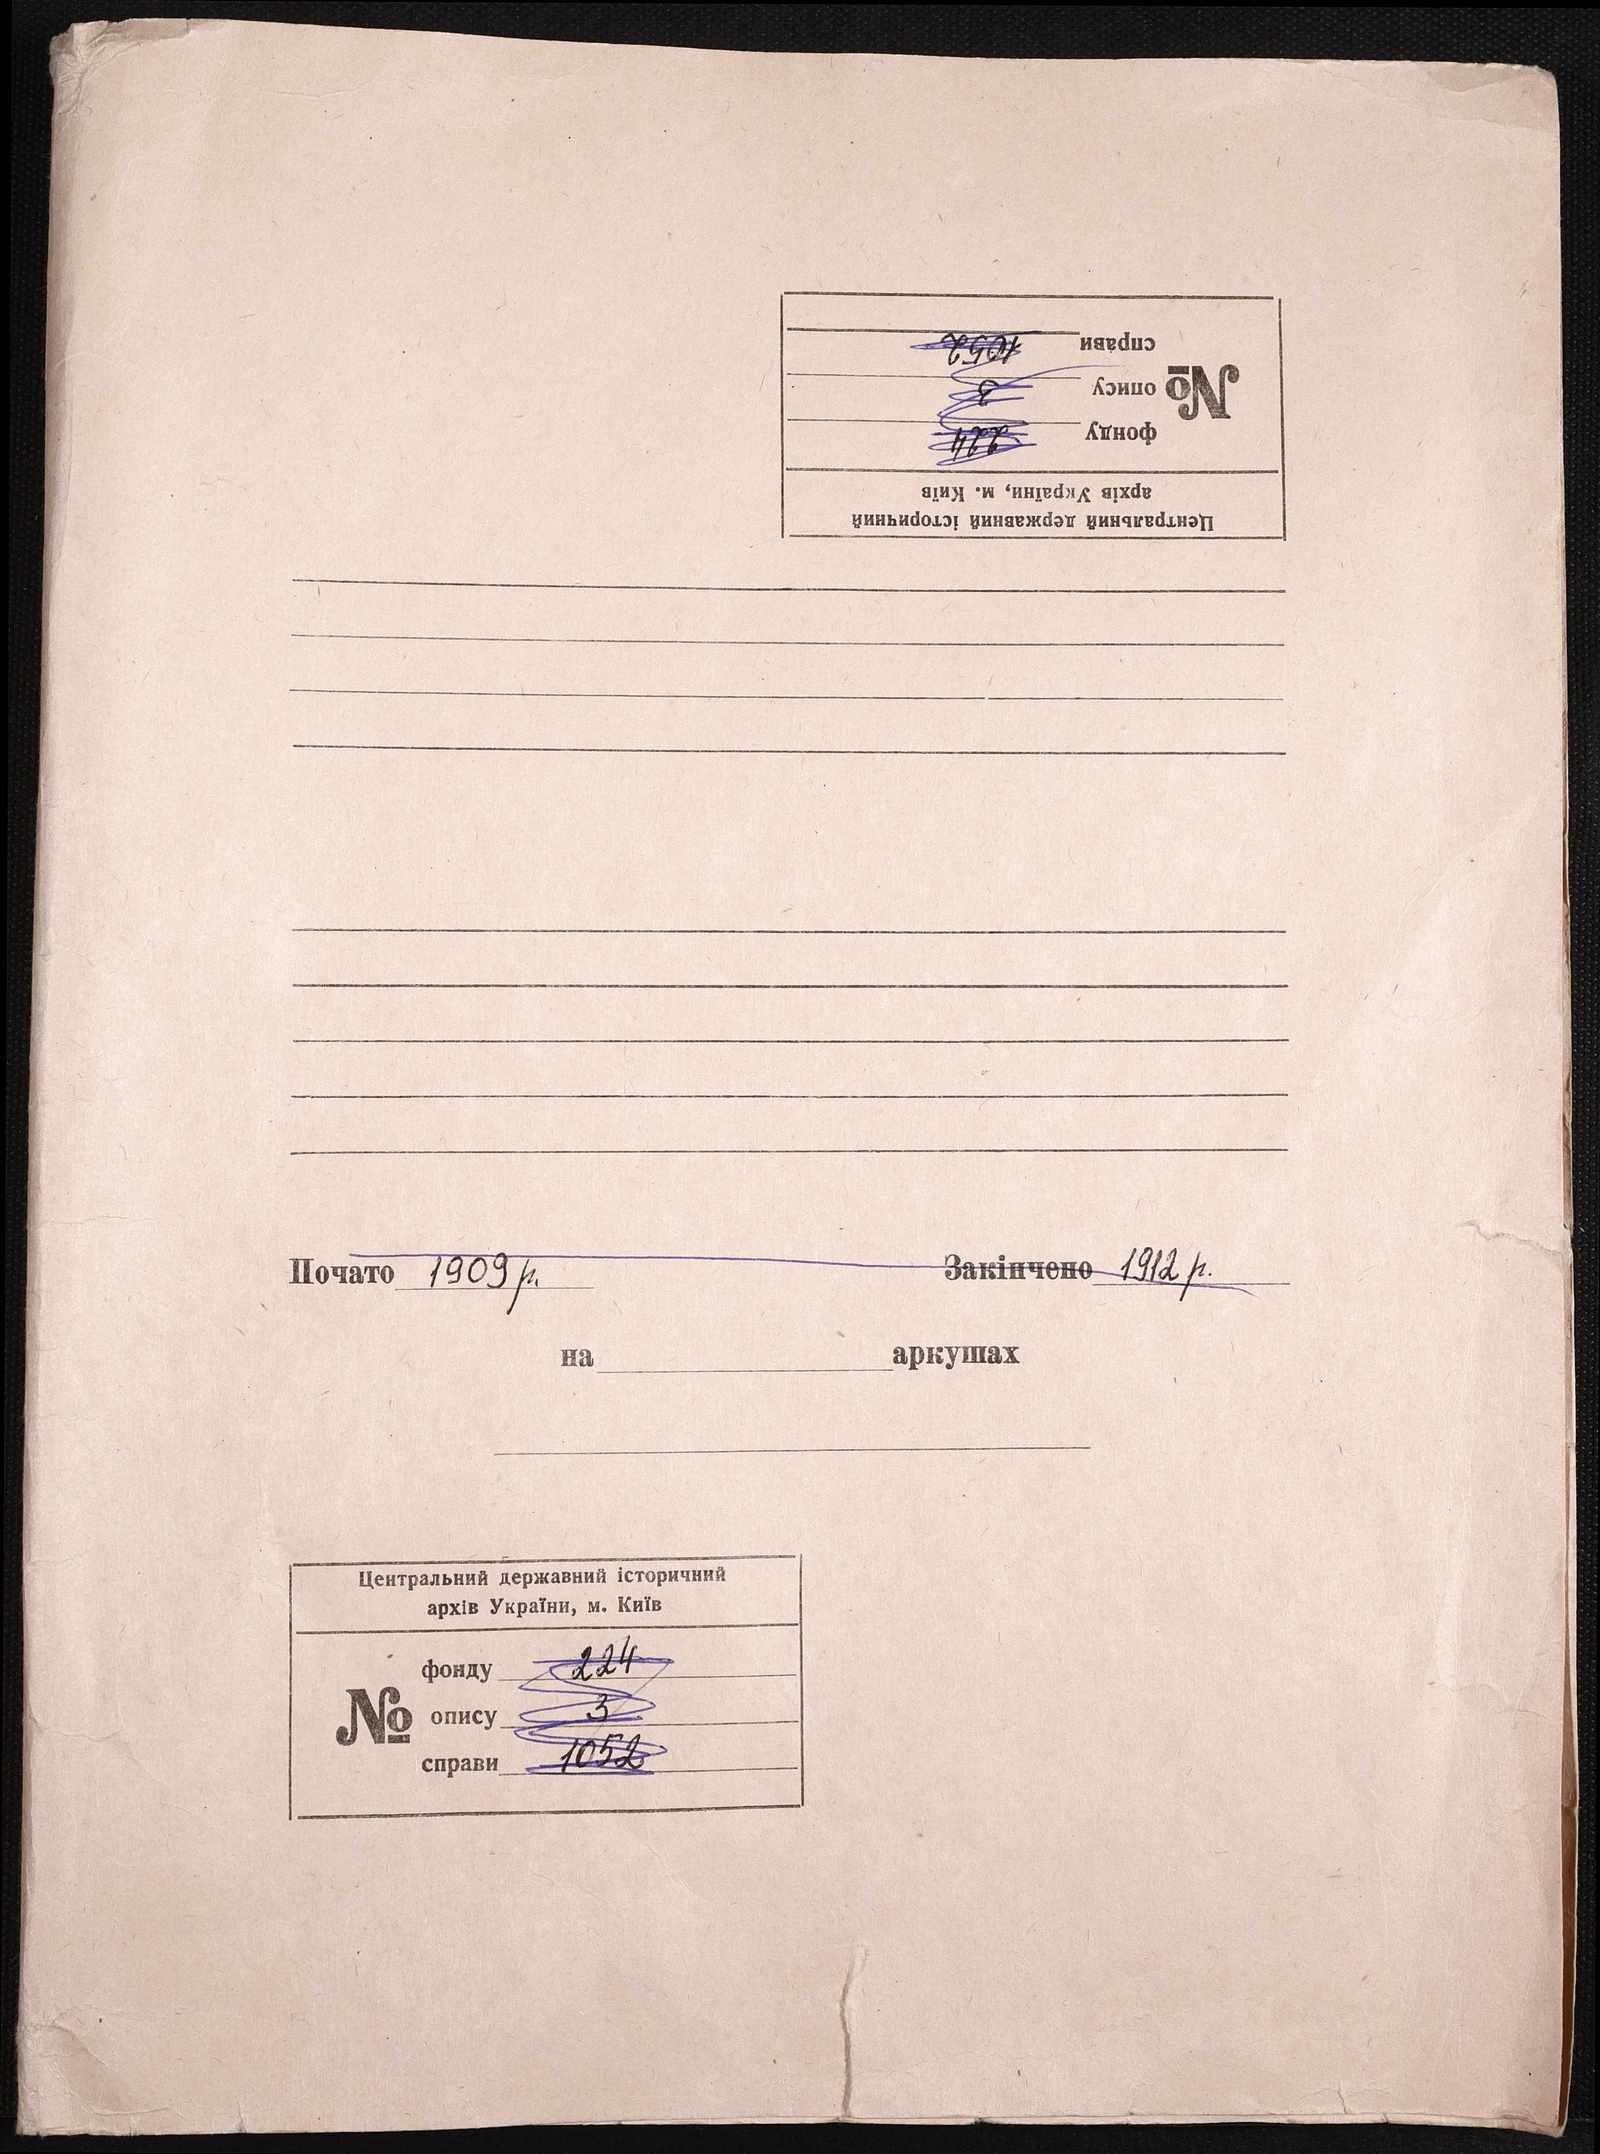 Центральний державний історичний
архів України, м. Київ
№
фонду 224
опису 3
справи 1052
Почато 1909 р. Закінчено 1912 р.
на аркушах
Центральний державний історичний
архів України, м. Київ
№
фонду 224
опису 3
справи 1052